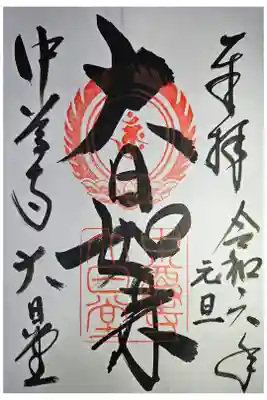 奉拝
令和六年
元旦
大日如来
中尊寺大日堂